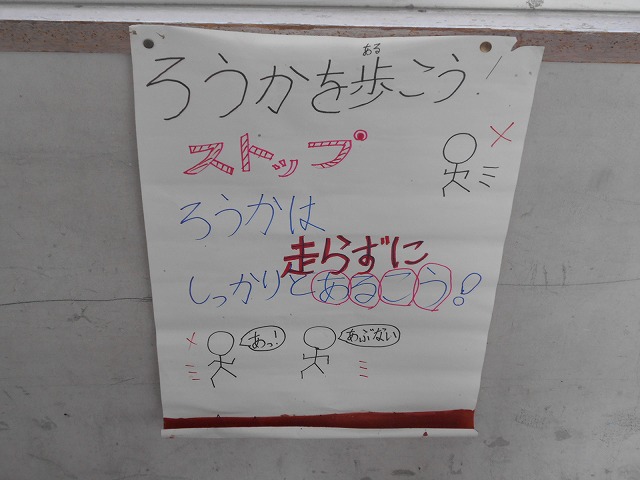 ある
ろうかを歩こう!
ストップ
ろうかは
走らずに
しっかりとあるこう!
あっ!
あぶない